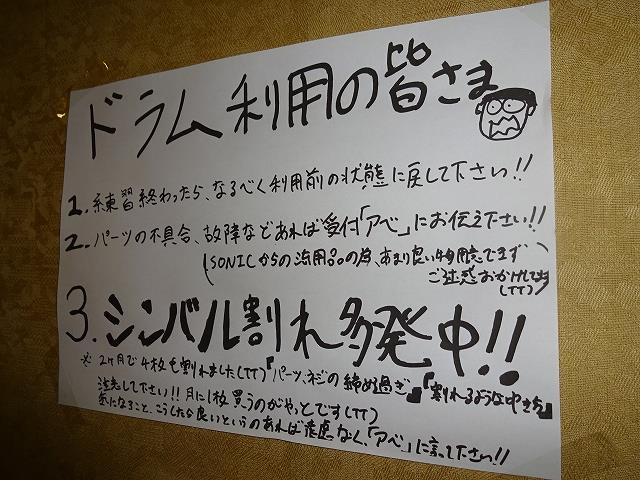 ドラム利用の皆さま
1. 練習終わったら、なるべく利用前の状態に戻して下さい!!
2. パーツの不具合、故障などあれば受付「アベ」にお伝え下さい!!
(SONICからの流用品の為、あまり良い物用意できず
ご迷惑おかけします(TT))
3. シンバル割れ多発中!!
※ 2ヶ月で4枚も割れました(TT)『パーツ、ネジの締め過ぎ』『割れるような叩き方』
注意して下さい!!月に1枚買うのがやっとです(TT)
気になること、こうしたら良いというのあれば遠慮なく、「アベ」に言って下さい!!